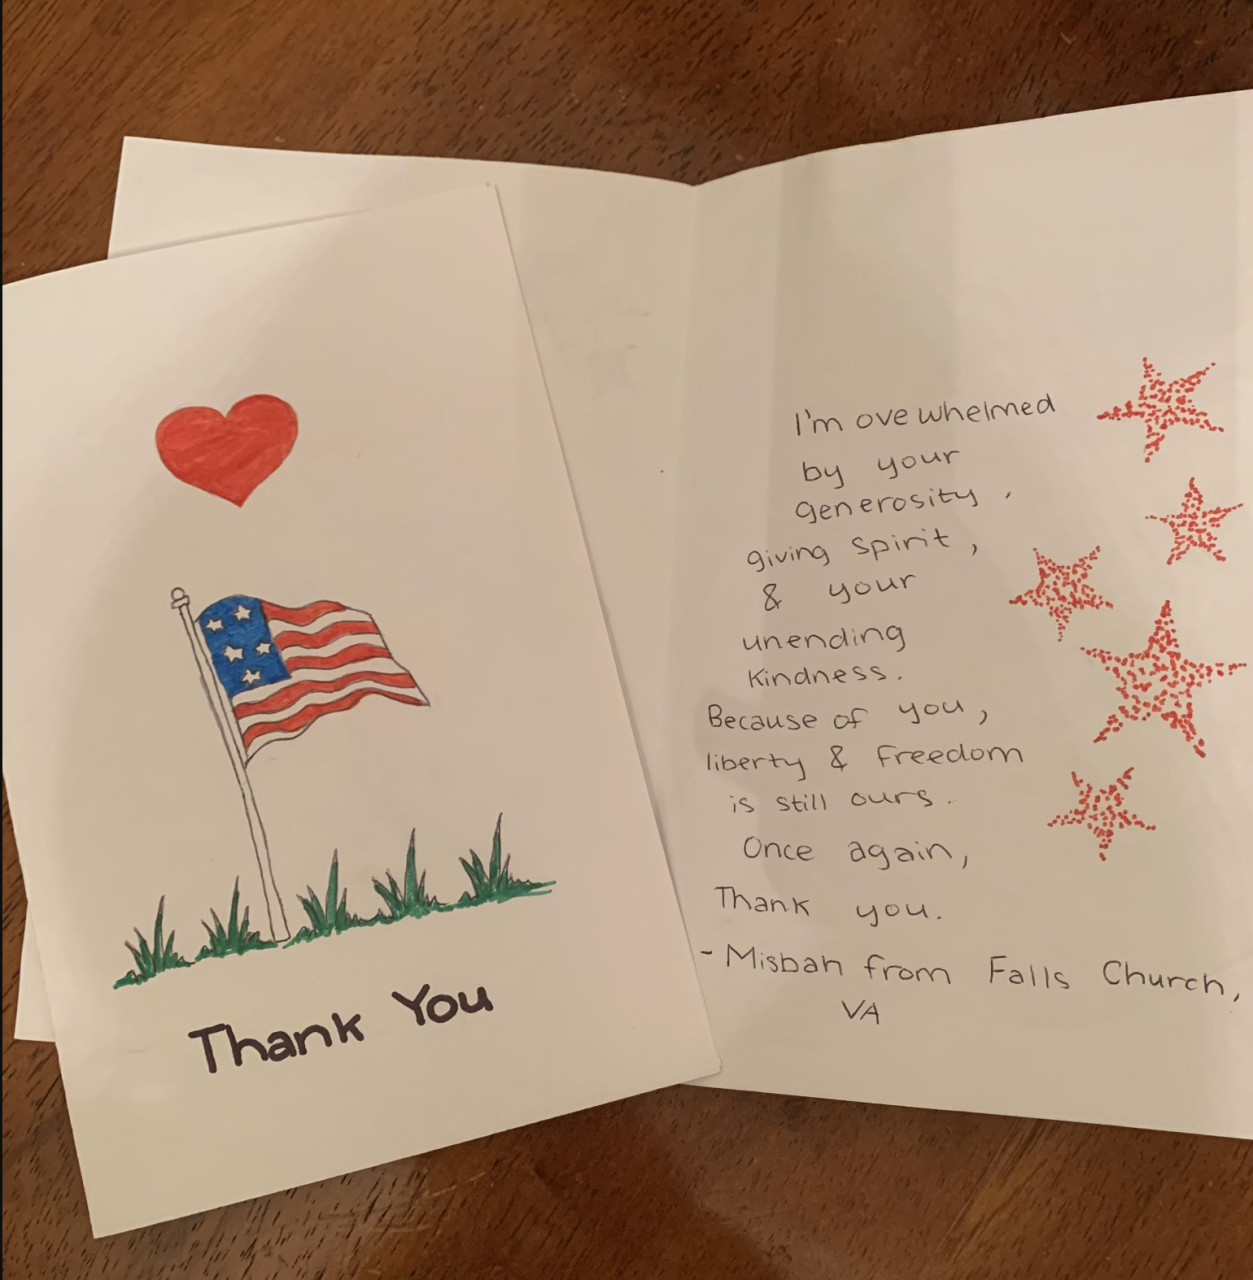 Thank You
I'm ovewhelmed
by your
generosity,
giving spirit,
& your
unending
kindness.
Because of you,
liberty & freedom
is still ours.
Once again,
Thank you.
- Misbah from Falls Church,
VA